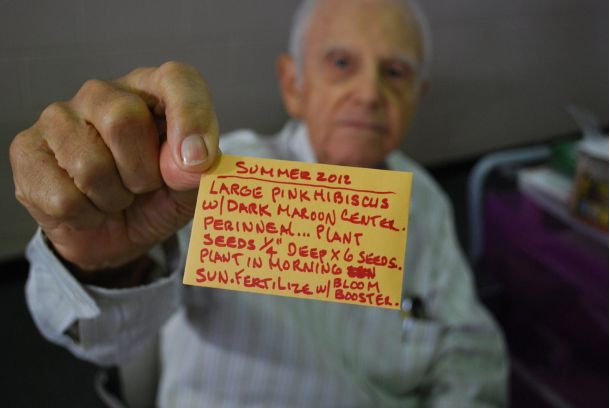 SUMMER 2012
LARGE PINK HIBISCUS
W/DARK MAROON CENTER.
PERINNEAL... PLANT
SEEDS 1/4" DEEP X 6 SEEDS.
PLANT IN MORNING
SUN. FERTILIZE W/ BLOOM
BOOSTER.